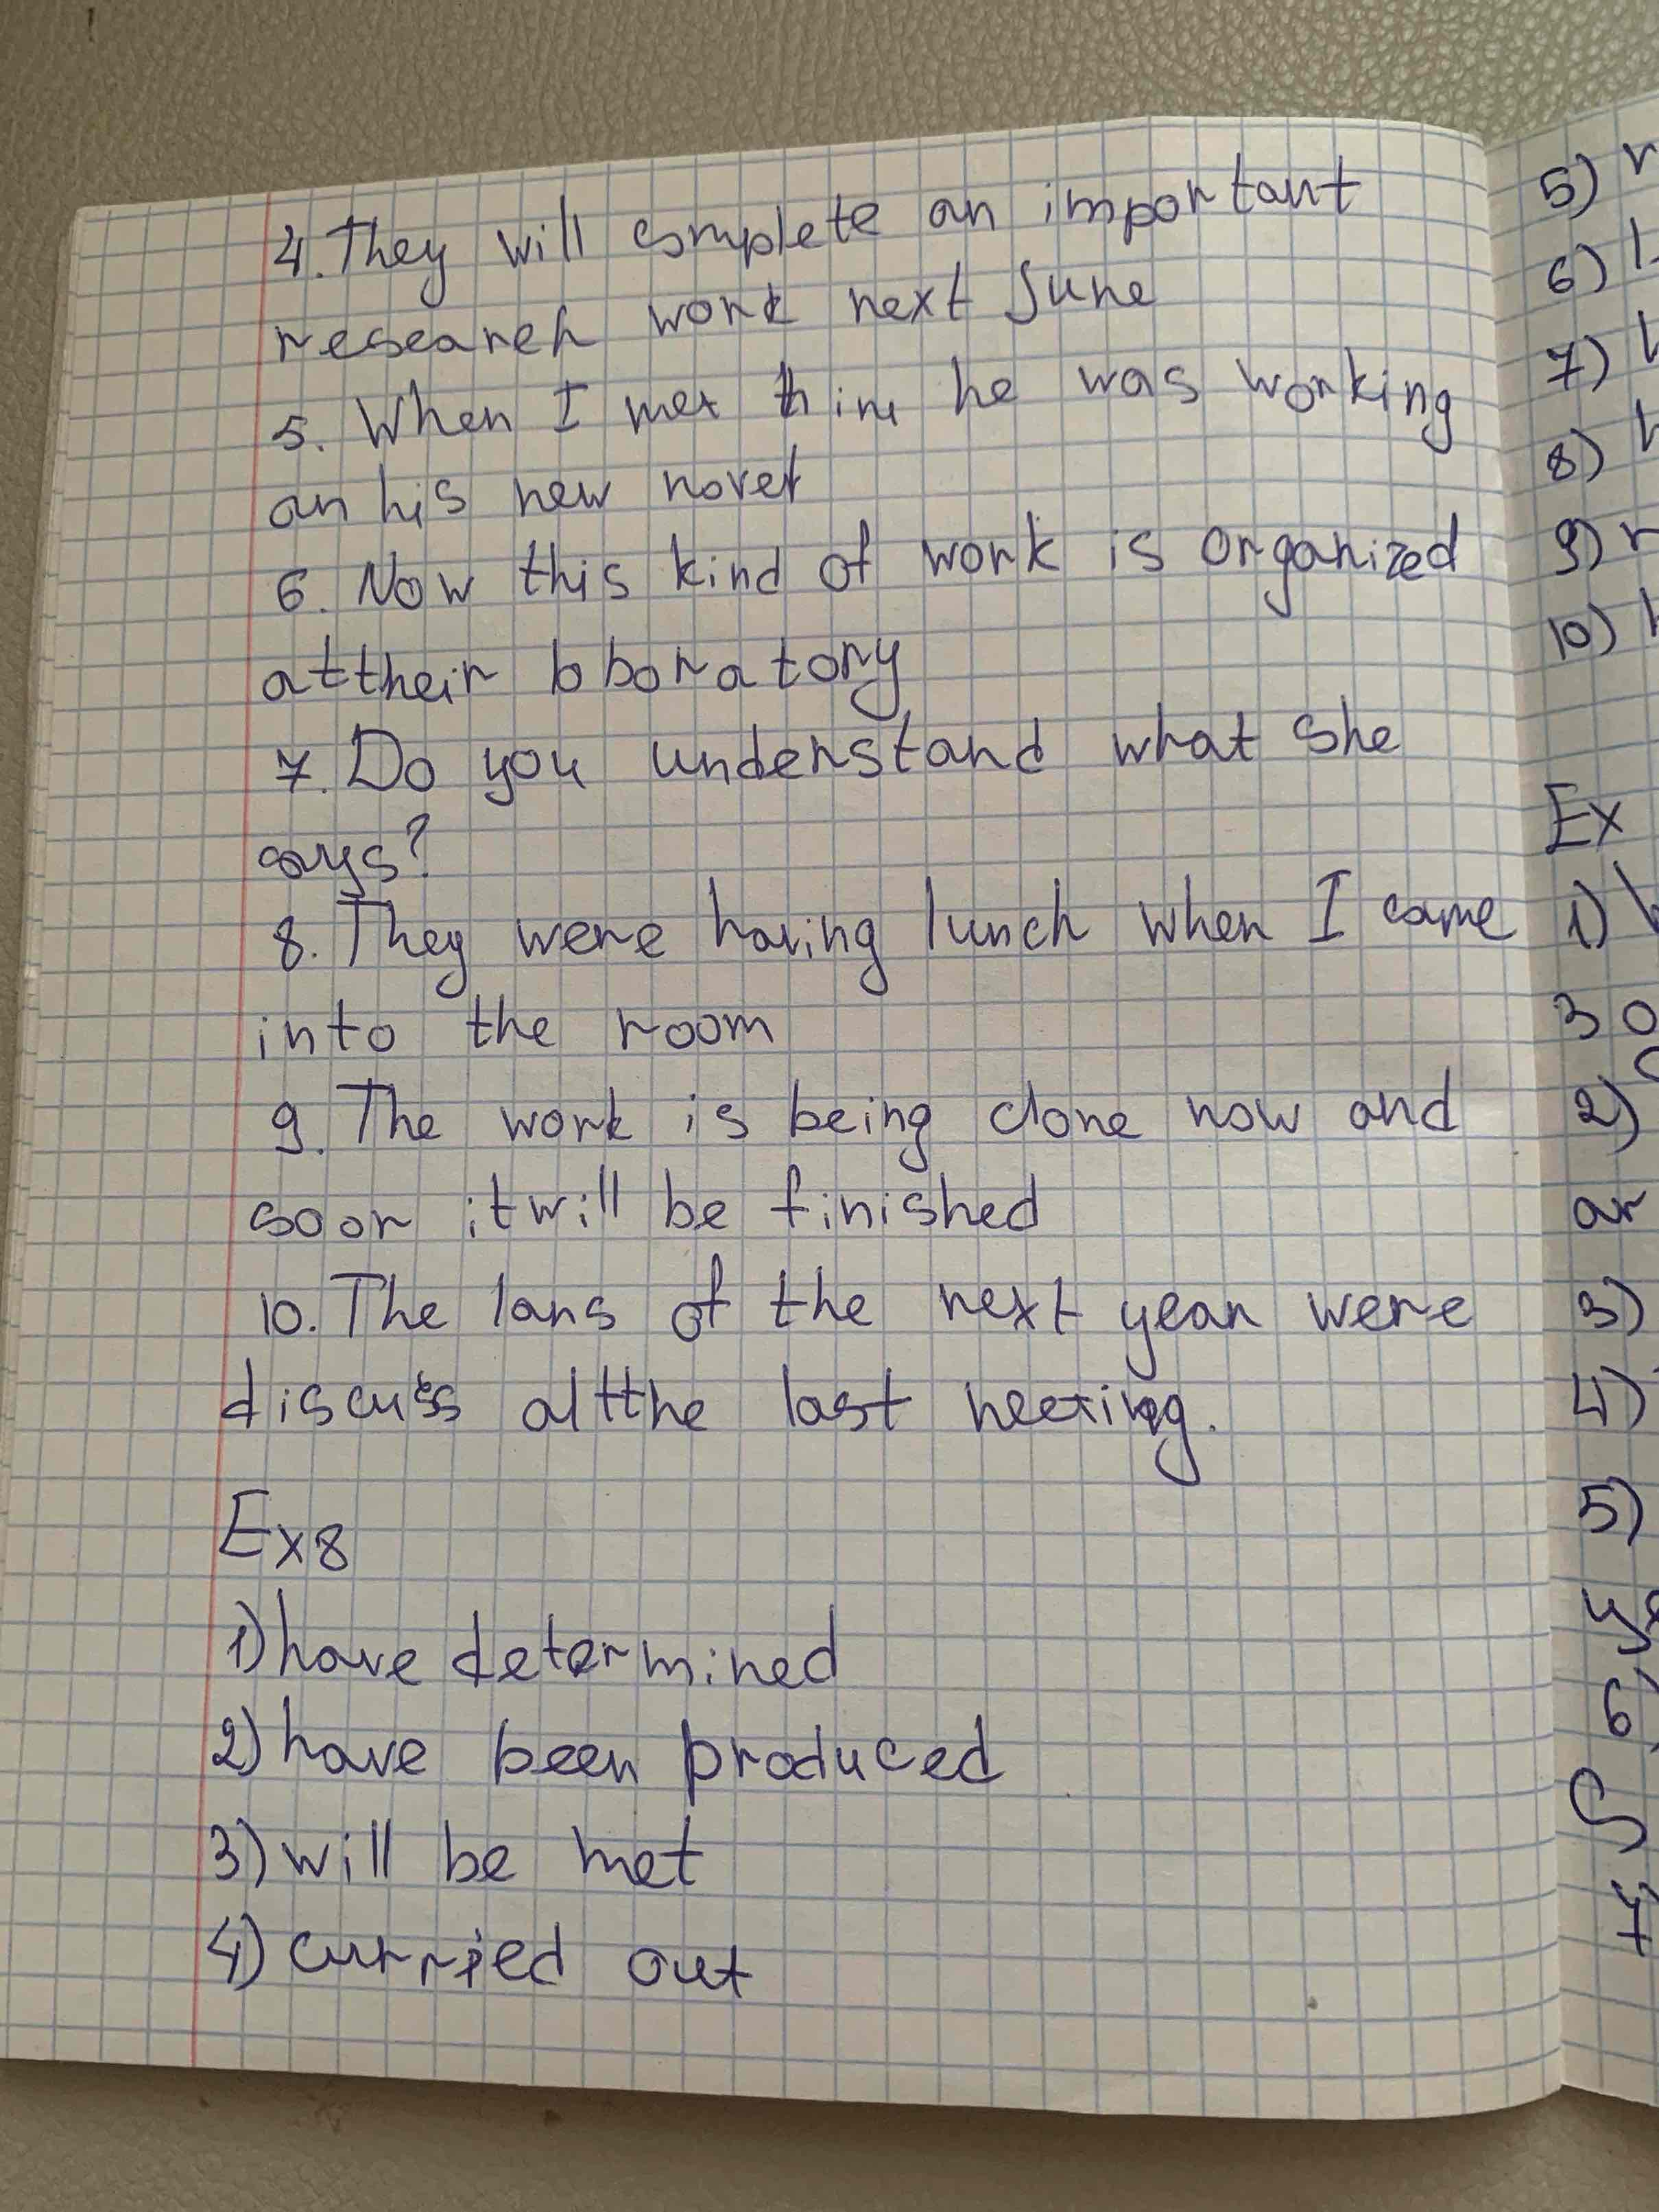 4. They will complete an important
research work next June
5. When I met him he was working
an his new novel
6. Now this kind of work is organized
at their bboratory
7. Do you understand what she
says?
8. They were having lunch when I came
into the room
9. The work is being done now and
soon it will be finished
10. The lans of the next year were
discuss at the last neeting.
Ex8
1) have determined
2) have been produced
3) will be met
4) curried out
5)
6)
7)
8)
9)
10)
Ex
1)
30
2)
ar
3)
4)
5)
6)
7